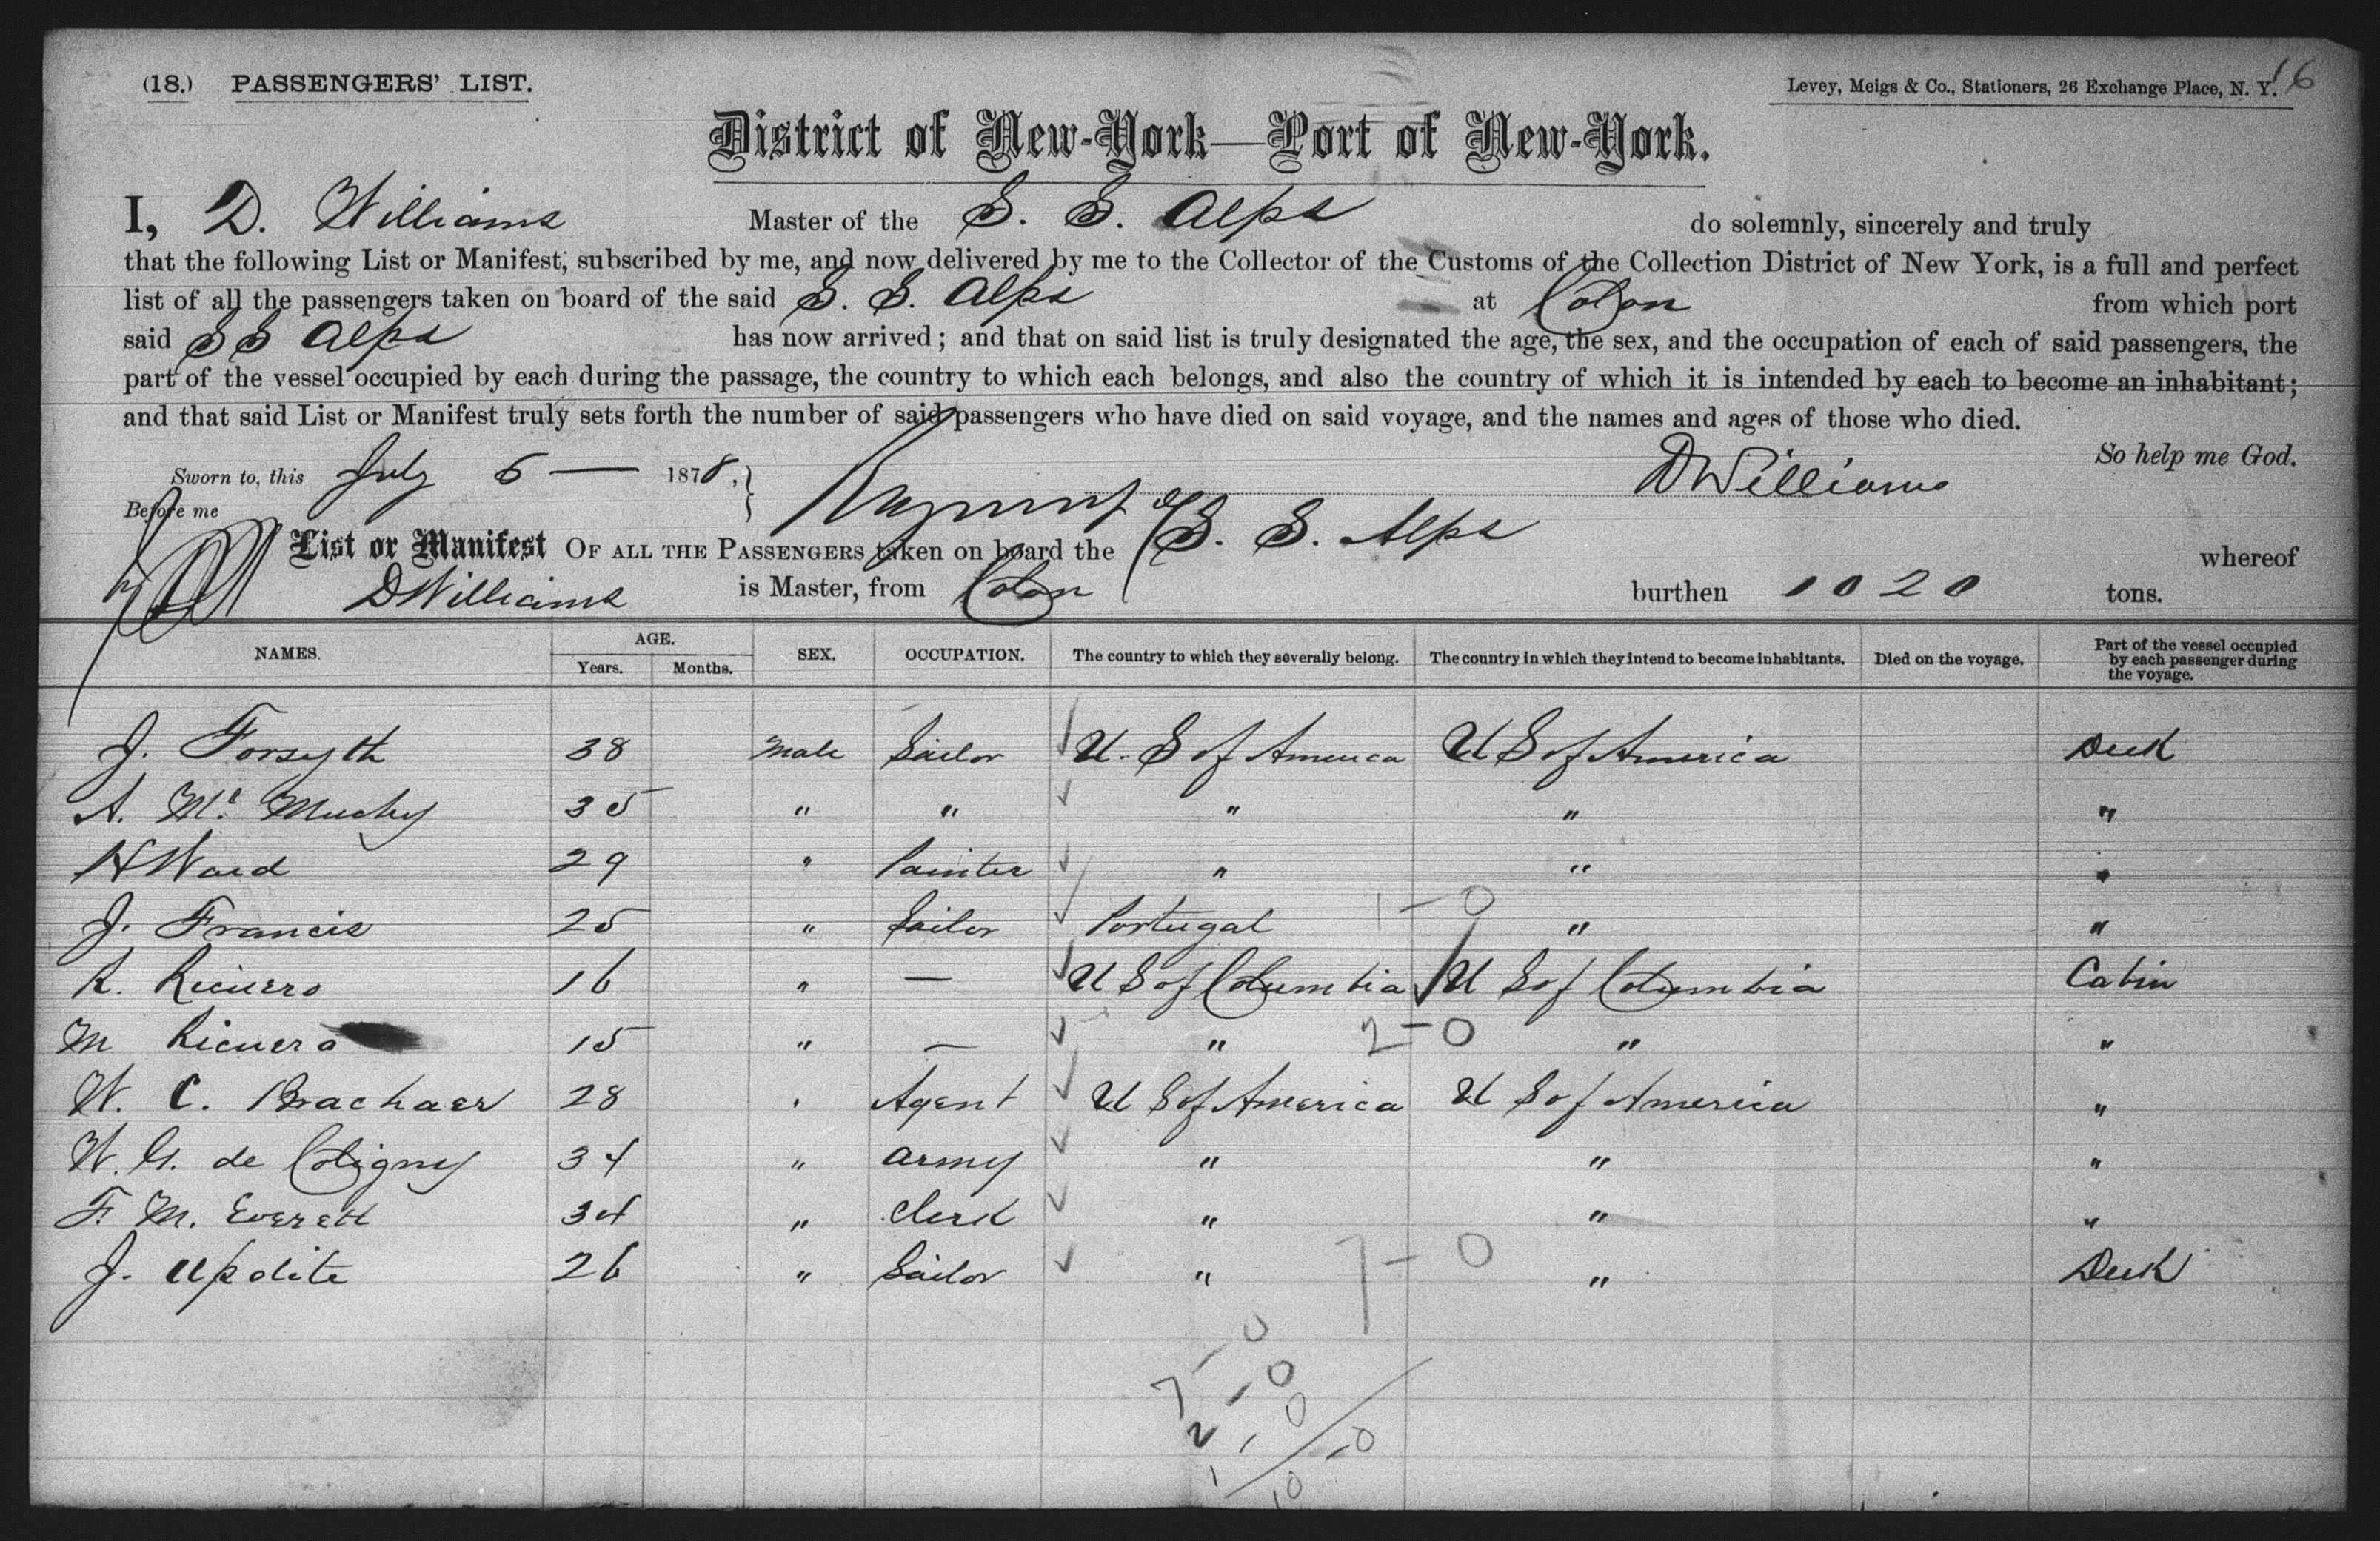 (18.) PASSENGERS' LIST. Levey, Meigs & Co., Stationers, 26 Exchange Place, N. Y. 16
District of New-York—Port of New-York.
I, D. Williams Master of the S. S. Alps do solemnly, sincerely and truly
that the following List or Manifest, subscribed by me, and now delivered by me to the Collector of the Customs of the Collection District of New York, is a full and perfect
list of all the passengers taken on board of the said S. S. Alps at Colon from which port
said S S Alps has now arrived; and that on said list is truly designated the age, the sex, and the occupation of each of said passengers, the
part of the vessel occupied by each during the passage, the country to which each belongs, and also the country of which it is intended by each to become an inhabitant;
and that said List or Manifest truly sets forth the number of said passengers who have died on said voyage, and the names and ages of those who died.
So help me God.
Sworn to, this July 6 — 1878, } D Williams
Before me
List or Manifest OF ALL THE PASSENGERS taken on board the S. S. Alps whereof
D Williams is Master, from Colon burthen 1020 tons.
NAMES. AGE. Years. Months. SEX. OCCUPATION. The country to which they severally belong. The country in which they intend to become inhabitants. Died on the voyage. Part of the vessel occupied by each passenger during the voyage.
J. Forsyth 38 Male Sailor U. S of America U S of America Deck
A. Mc Muchy 35 " " " " "
H Ward 29 " Painter " " "
J. Francis 25 " Sailor Portugal 1 - 0 " "
R. Ricuero 16 " — U S of Columbia U S of Columbia Cabin
M Ricuero 15 " — " 2 - 0 " "
W. C. Brachaer 28 " Agent U S of America U S of America "
W. G. de Coligny 34 " Army " " "
F. M. Everett 34 " Clerk " " "
J. Updite 26 " Sailor " 7 - 0 " Deck
7 - 0
2 - 0
1 - 0
10 - 0